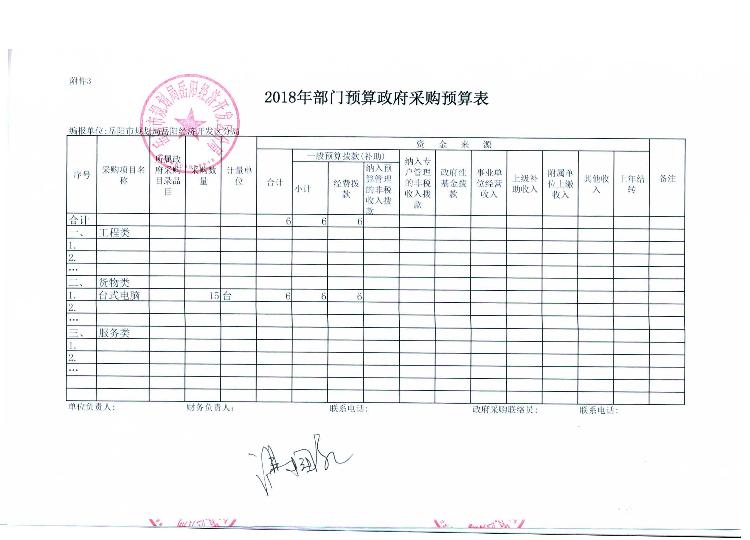 附件3
2018年部门预算政府采购预算表
编报单位:岳阳市规划局岳阳经济开发区分局
资 金 来 源
一般预算拨款(补助)
序号 采购项目名称 所属政府采购目录品目 采购数量 计量单位 合计 小计 经费拨款 纳入预算管理的非税收入拨款 纳入专户管理的非税收入拨款 政府性基金拨款 事业单位经营收入 上级补助收入 附属单位上缴收入 其他收入 上年结转 备注
合计 6 6 6
一、 工程类
1.
2.
…
二、 货物类
1. 台式电脑 15 台 6 6 6
2.
…
三、 服务类
1.
2.
…
单位负责人: 财务负责人: 联系电话: 政府采购联络员: 联系电话: